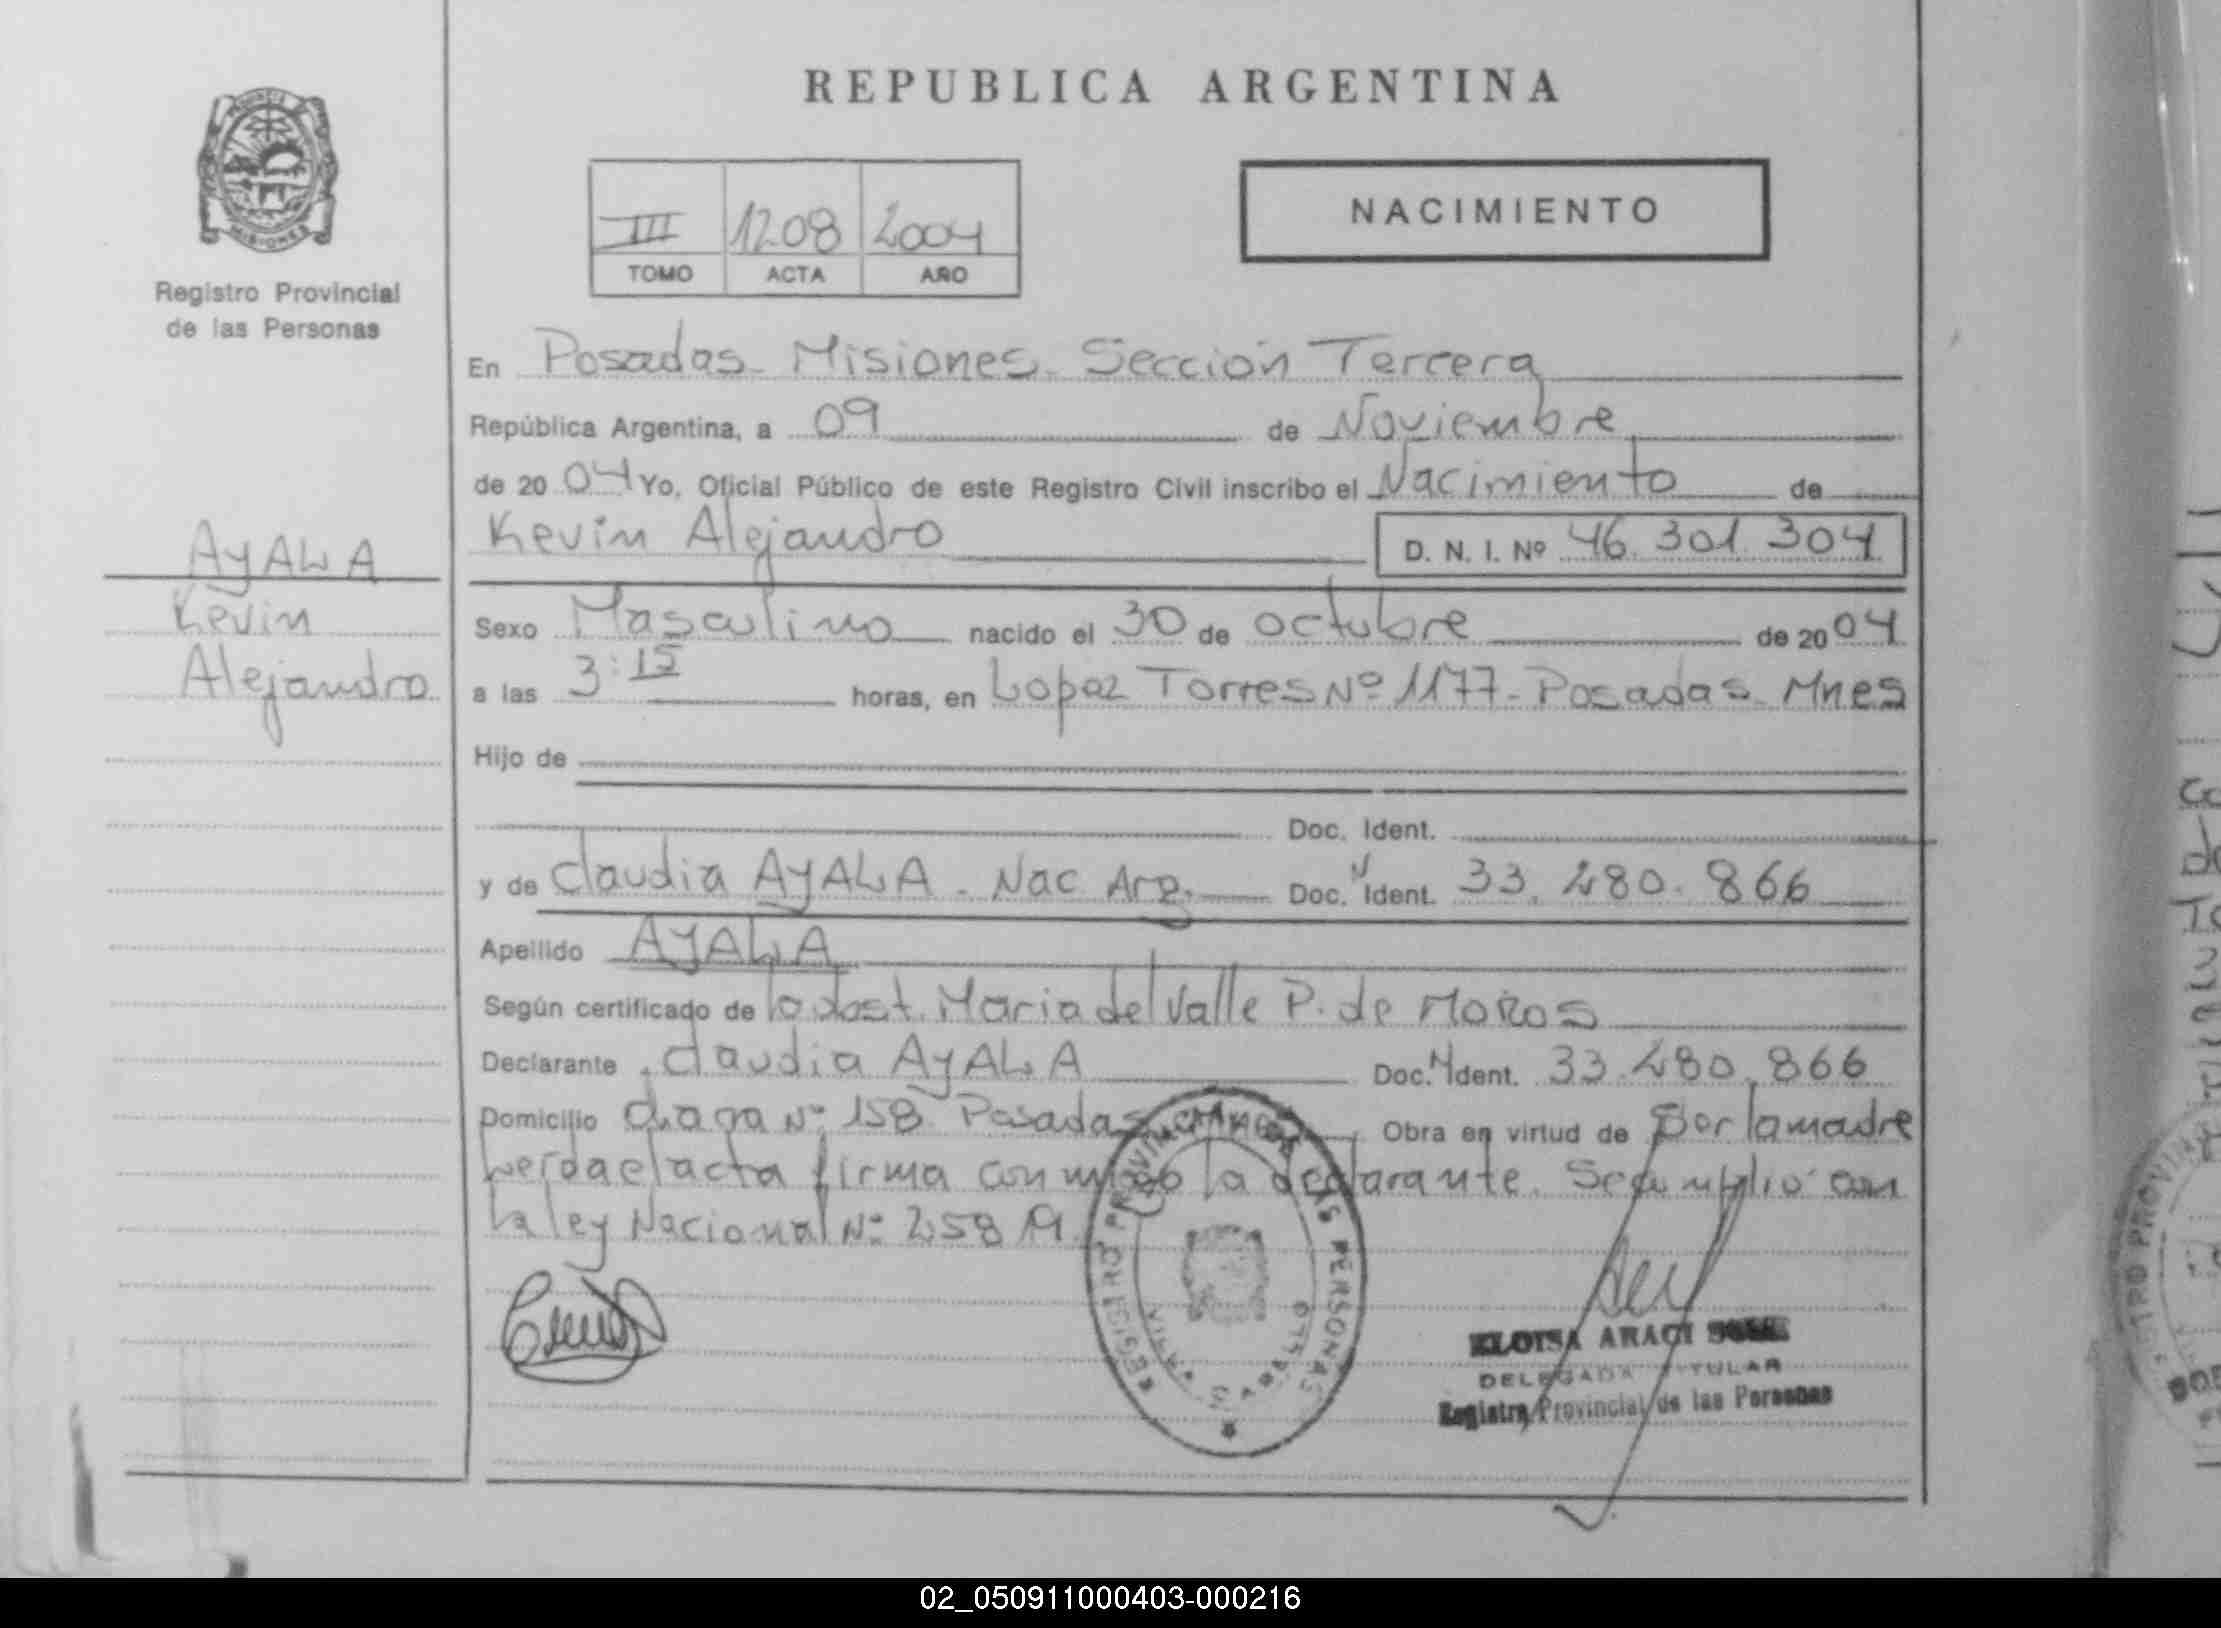 REPUBLICA ARGENTINA
MISIONES
Registro Provincial
de las Personas
III 1208 2004
TOMO ACTA AÑO
NACIMIENTO
En Posadas - Misiones - Sección Tercera
República Argentina, a 09 de Noviembre
de 2004 Yo, Oficial Público de este Registro Civil inscribo el Nacimiento de
Kevin Alejandro D. N. I. Nº 46.301.304
AYALA
Kevin
Alejandro
Sexo Masculino nacido el 30 de octubre de 2004
a las 3:15 horas, en Lopez Torres Nº 1177 - Posadas - Mnes
Hijo de
Doc. Ident.
y de Claudia AYALA - Nac Arg. Doc. Ident. 33.280.866
Apellido AYALA
Según certificado de la obst. Maria del Valle P. de MOROS
Declarante Claudia AYALA Doc. Ident. 33.280.866
Domicilio chacra Nº 158 Posadas Obra en virtud de Ser la madre
Leida el acta firma conmigo la declarante. Se cumplió con
la ley Nacional Nº
REGISTRO PROVINCIAL DE LAS PERSONAS
VILLA CABELLO
ELOISA ARACI
DELEGADA TITULAR
Registro Provincial de las Personas
02_050911000403-000216